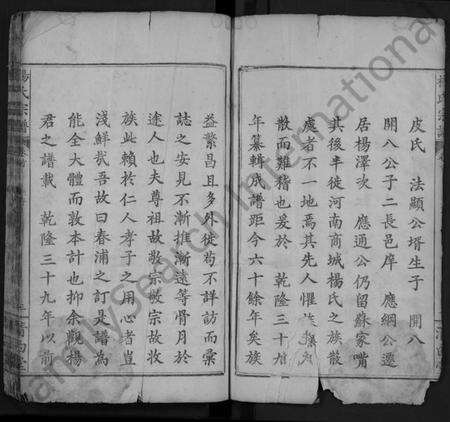 皮氏 法顯公壻生子 開八
開八公子二長邑庠 應綱公遷
居楊澤坎 應通公仍留蘇家嘴
其後半徙河南商城楊氏之族散
處者不一地焉其先人懼
散而難稽也爰於 乾隆三十九
年纂輯成譜距今六十餘年矣族
益繁昌且多外徙苟不詳訪而彙
誌之安見不漸推漸遠等骨月於
途人也夫尊祖故敬宗敬宗故收
族此賴於仁人孝子之用心者豈
淺鮮哉吾故曰春浦之訂是譜為
能全大體而敦本計也抑余觀楊
君之譜載 乾隆三十九年以前
楊氏宗譜
FamilySearch International